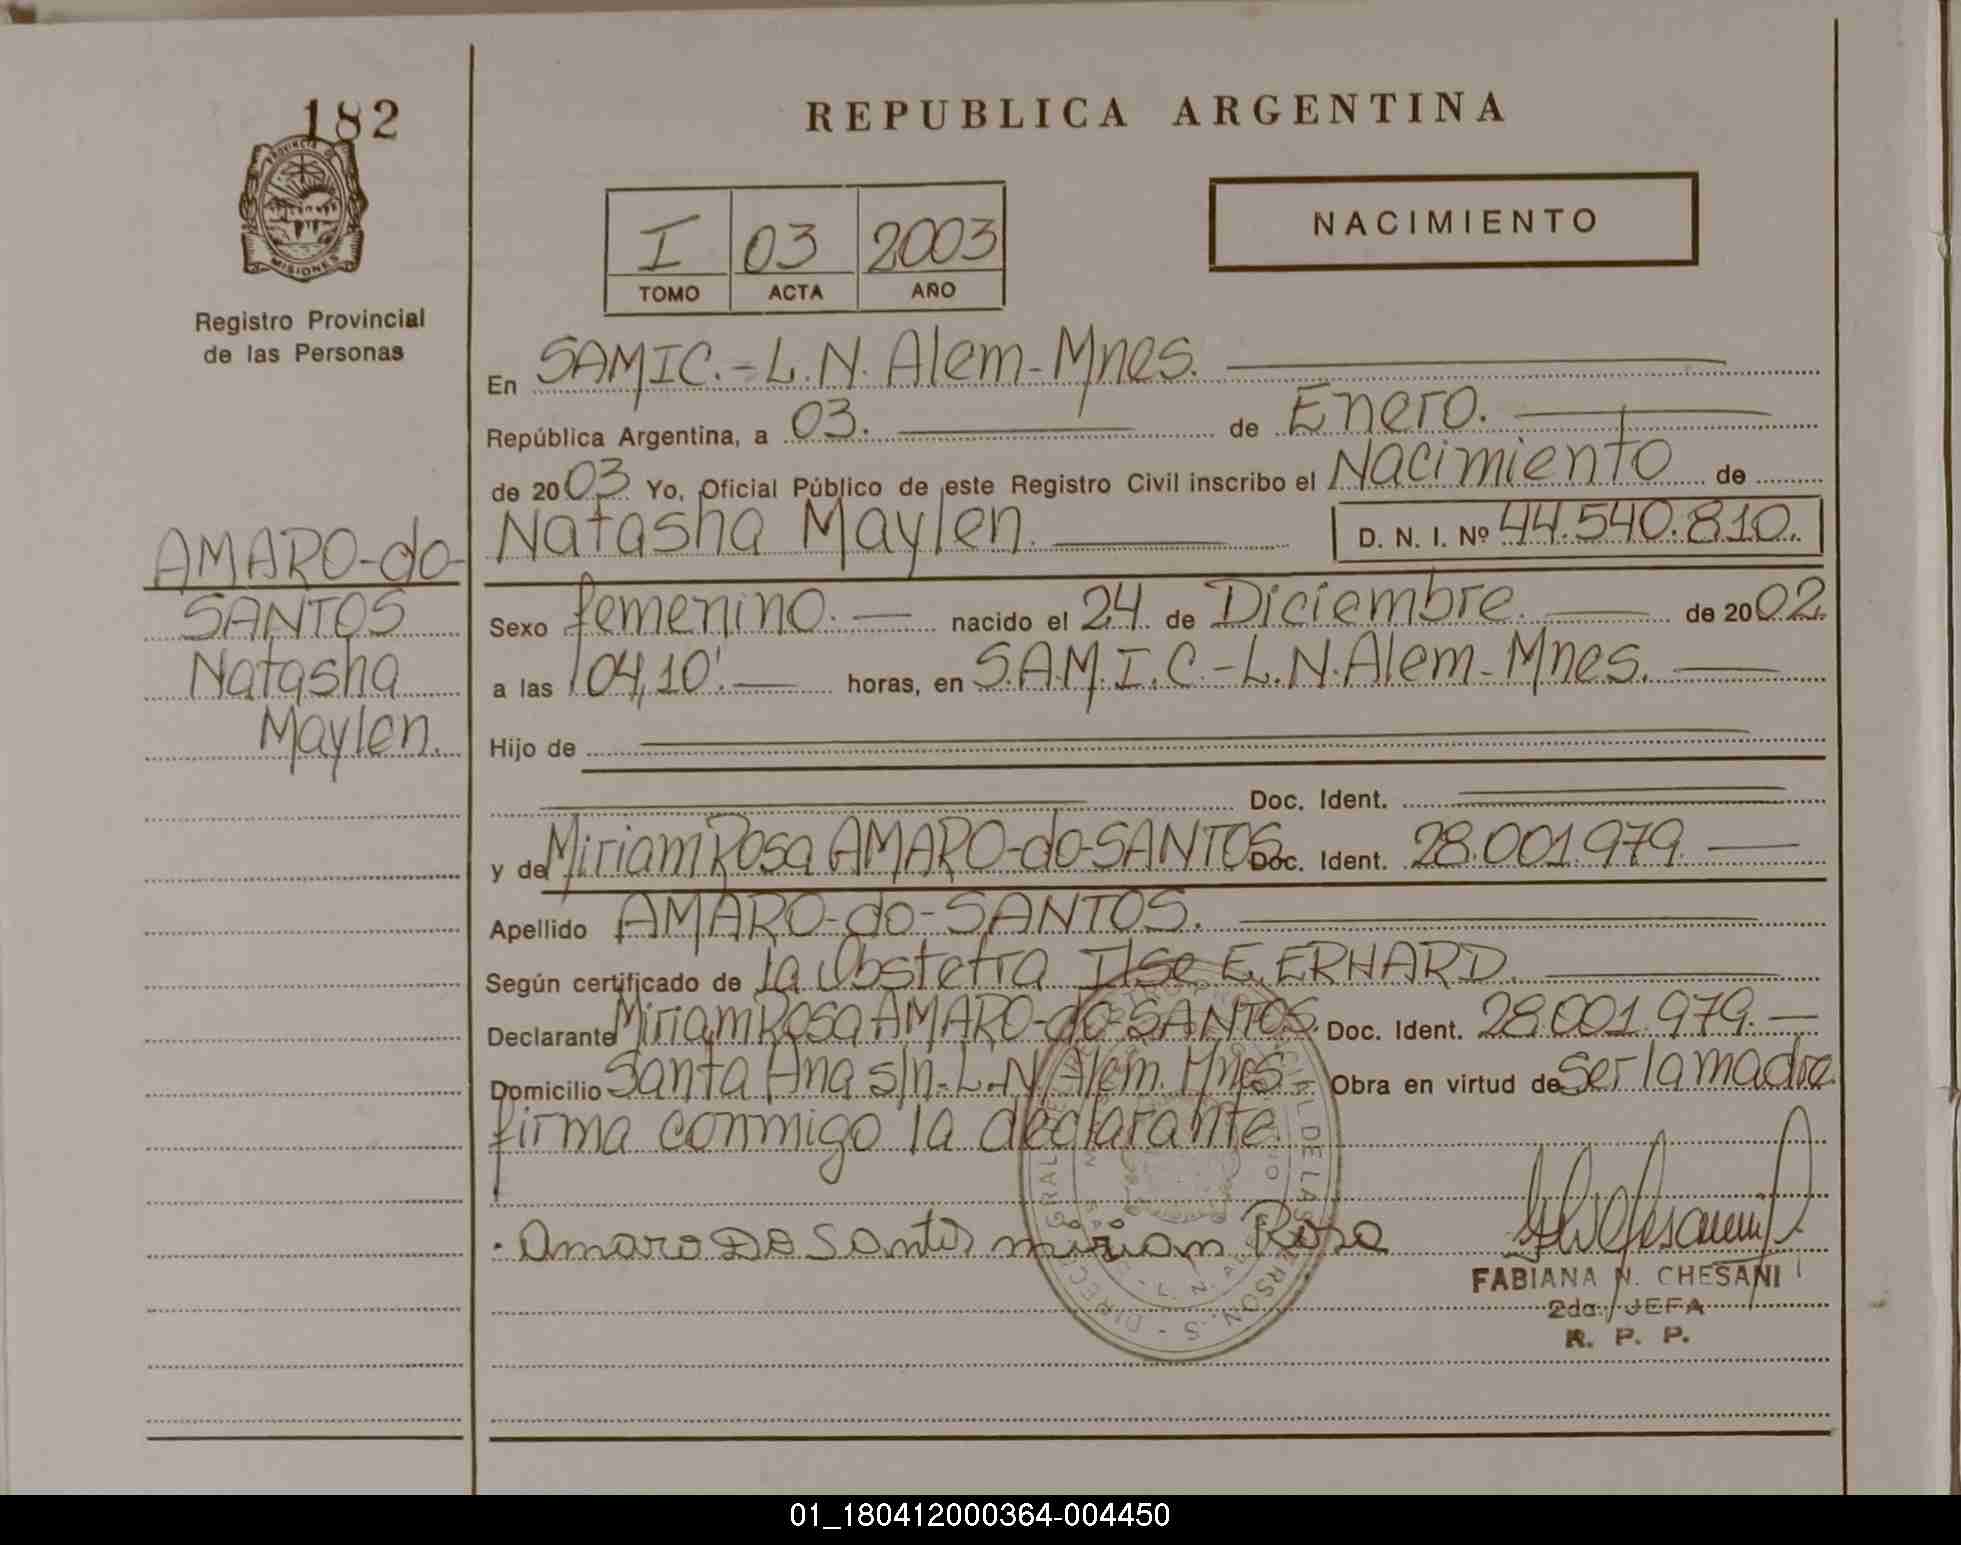 182
PROVINCIA DE
MISIONES
Registro Provincial
de las Personas
AMARO-do-
SANTOS
Natasha
Maylen.
REPUBLICA ARGENTINA
I 03 2003
TOMO ACTA AÑO
NACIMIENTO
En SAMIC.-L.N. Alem-Mnes.
República Argentina, a 03. de Enero.
de 2003 Yo, Oficial Público de este Registro Civil inscribo el Nacimiento de
Natasha Maylen. D. N. I. Nº 44.540.810.
Sexo femenino.- nacido el 24 de Diciembre. de 2002.
a las 04,10'. horas, en S.A.M.I.C.-L.N.Alem-Mnes.
Hijo de
Doc. Ident.
y de Miriam Rosa AMARO-do-SANTOS Doc. Ident. 28.001.979.
Apellido AMARO-do-SANTOS.
Según certificado de la Obstetra Ilse E. ERHARD.
Declarante Miriam Rosa AMARO-do-SANTOS. Doc. Ident. 28.001.979.-
Domicilio Santa Ana s/n.-L.N.Alem. Mnes- Obra en virtud de ser la madre
firma conmigo la declarante.
Amaro Do Santos miriam Rosa
FABIANA N. CHESANI
2da. JEFA
R. P. P.
01_180412000364-004450